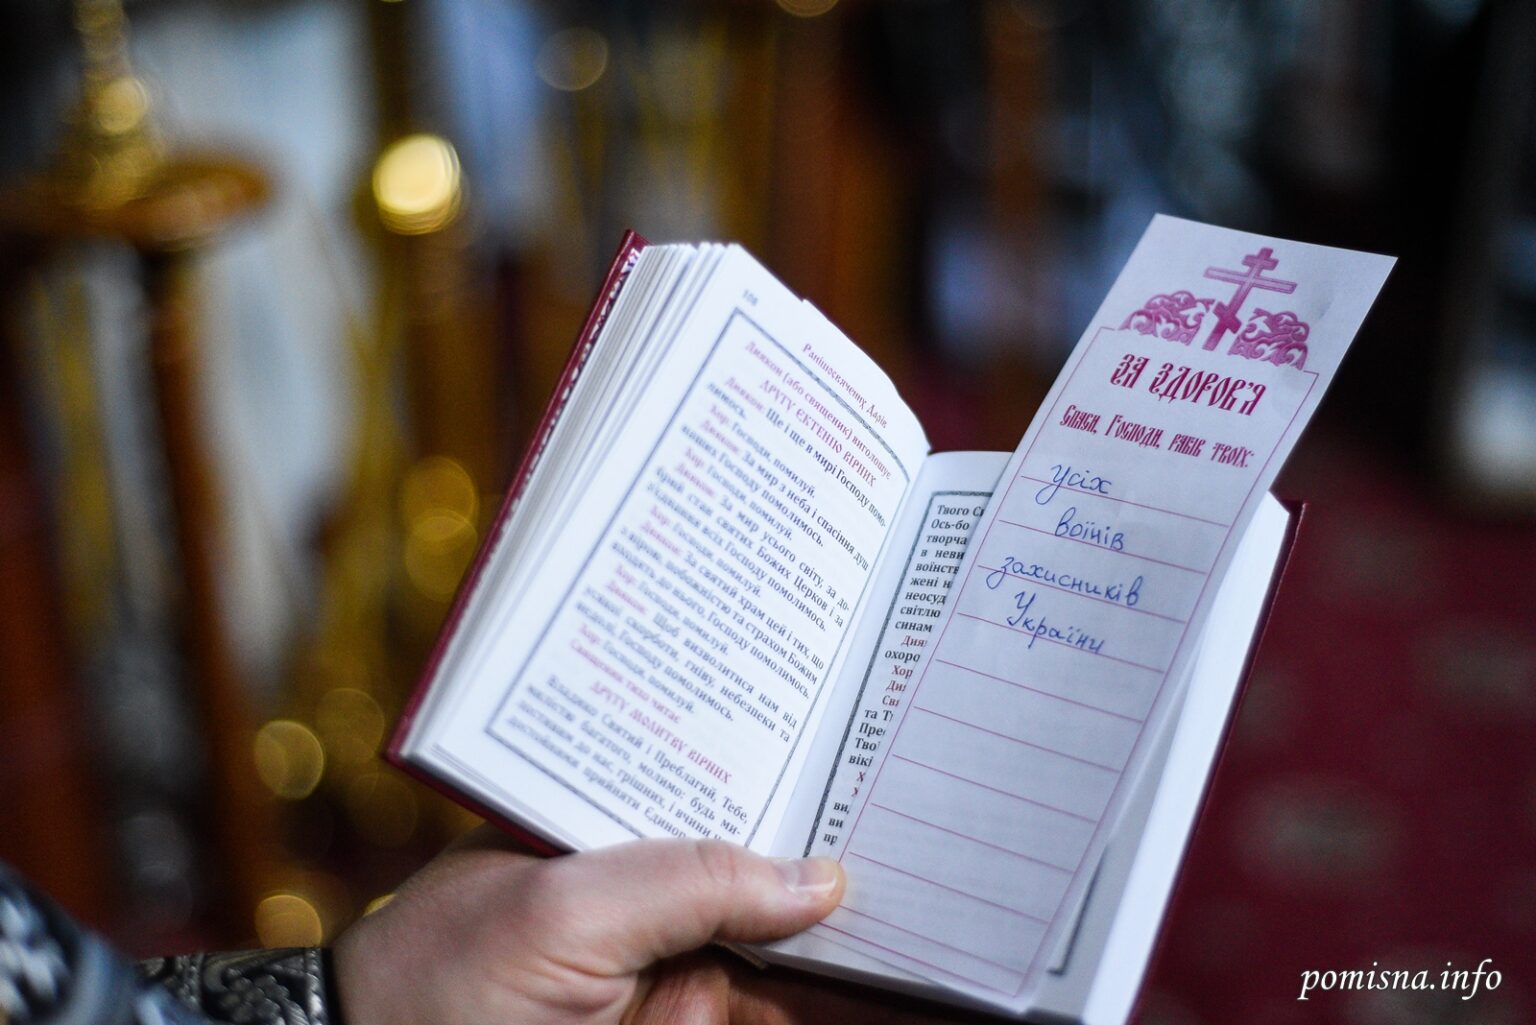 108
Ранішосвячених Дарів
Диякон (або священик) виголошує
ДРУГУ ЄКТЕНІЮ ВІРНИХ
Диякон: Ще і ще в мирі Господу помо-
лимось.
Хор: Господи, помилуй.
Диякон: За мир з неба і спасіння душ
наших Господу помолимось.
Хор: Господи, помилуй.
Диякон: За мир усього світу, за до-
брий стан святих Божих Церков і за
з'єднання всіх Господу помолимось.
Хор: Господи, помилуй.
Диякон: За святий храм цей і тих, що
з вірою, побожністю та страхом Божим
входять до нього, Господу помолимось.
Хор: Господи, помилуй.
Диякон: Щоб визволитися нам від
усякої скорботи, гніву, небезпеки та
недолі, Господу помолимось.
Хор: Господи, помилуй.
Священик тихо читає
ДРУГУ МОЛИТВУ ВІРНИХ
Владико Святий і Преблагий, Тебе,
милістю багатого, молимо: будь ми-
лостивим до нас, грішних, і вчини н
достойними прийняти Єдинор
Твого С
Ось-бо
творча
в неви
воїнств
жені н
неосуд
світлю
синам
Дия
охоро
Хор
Ди
Св
та Т
Пре
Тво
вікі
Х
ви
ви
пр
ЗА ЗДОРОВ'Я
Спаси, Господи, рабів твоїх:
усіх
воїнів
захисників
України
pomisna.info